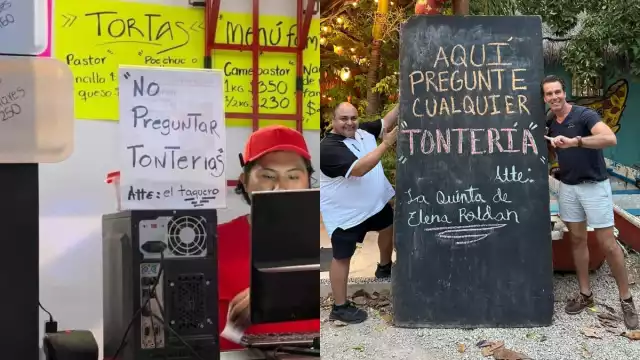 50
TORTAS
Pastor
Pechuc
ncillo 8
queso.$
ares
250
Menú f
Came pastor
1kg $350
1/2. 230
"No
Preguntar
Tonterías"
Atte: el taquero
AQUÍ
PREGUNTE
CUALQUIER
"TONTERÍA"
Atte:
La Quinta de
Elena Roldan